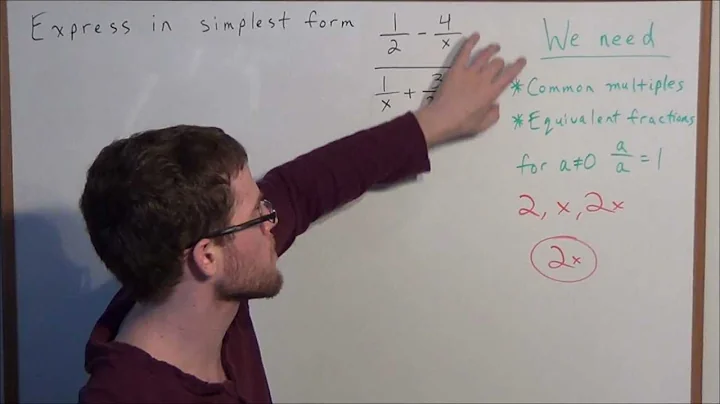 Express in simplest form
1/2 - 4/x
1/x +
We need
* Common multiples
* Equivalent fractions
for a≠0 a/a = 1
2, x, 2x
2x